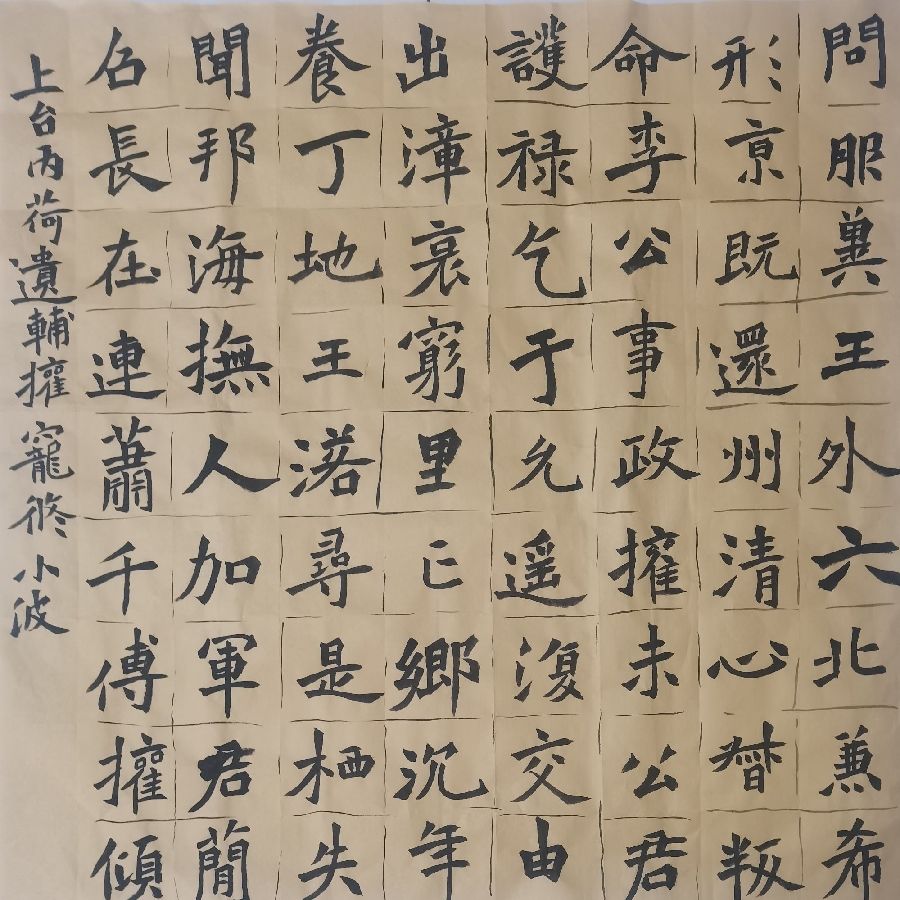 問服冀王外六北兼希
形京既還州清心督叛
命李公事政擁未公君
護禄乞于允遥復交由
出漳哀窮里亡鄉沉年
養丁地王渃尋是栖失
聞邦海撫人加軍君蕳
名長在連蕭千傅擁傾
上台丙荷遺輔擁寵修小波